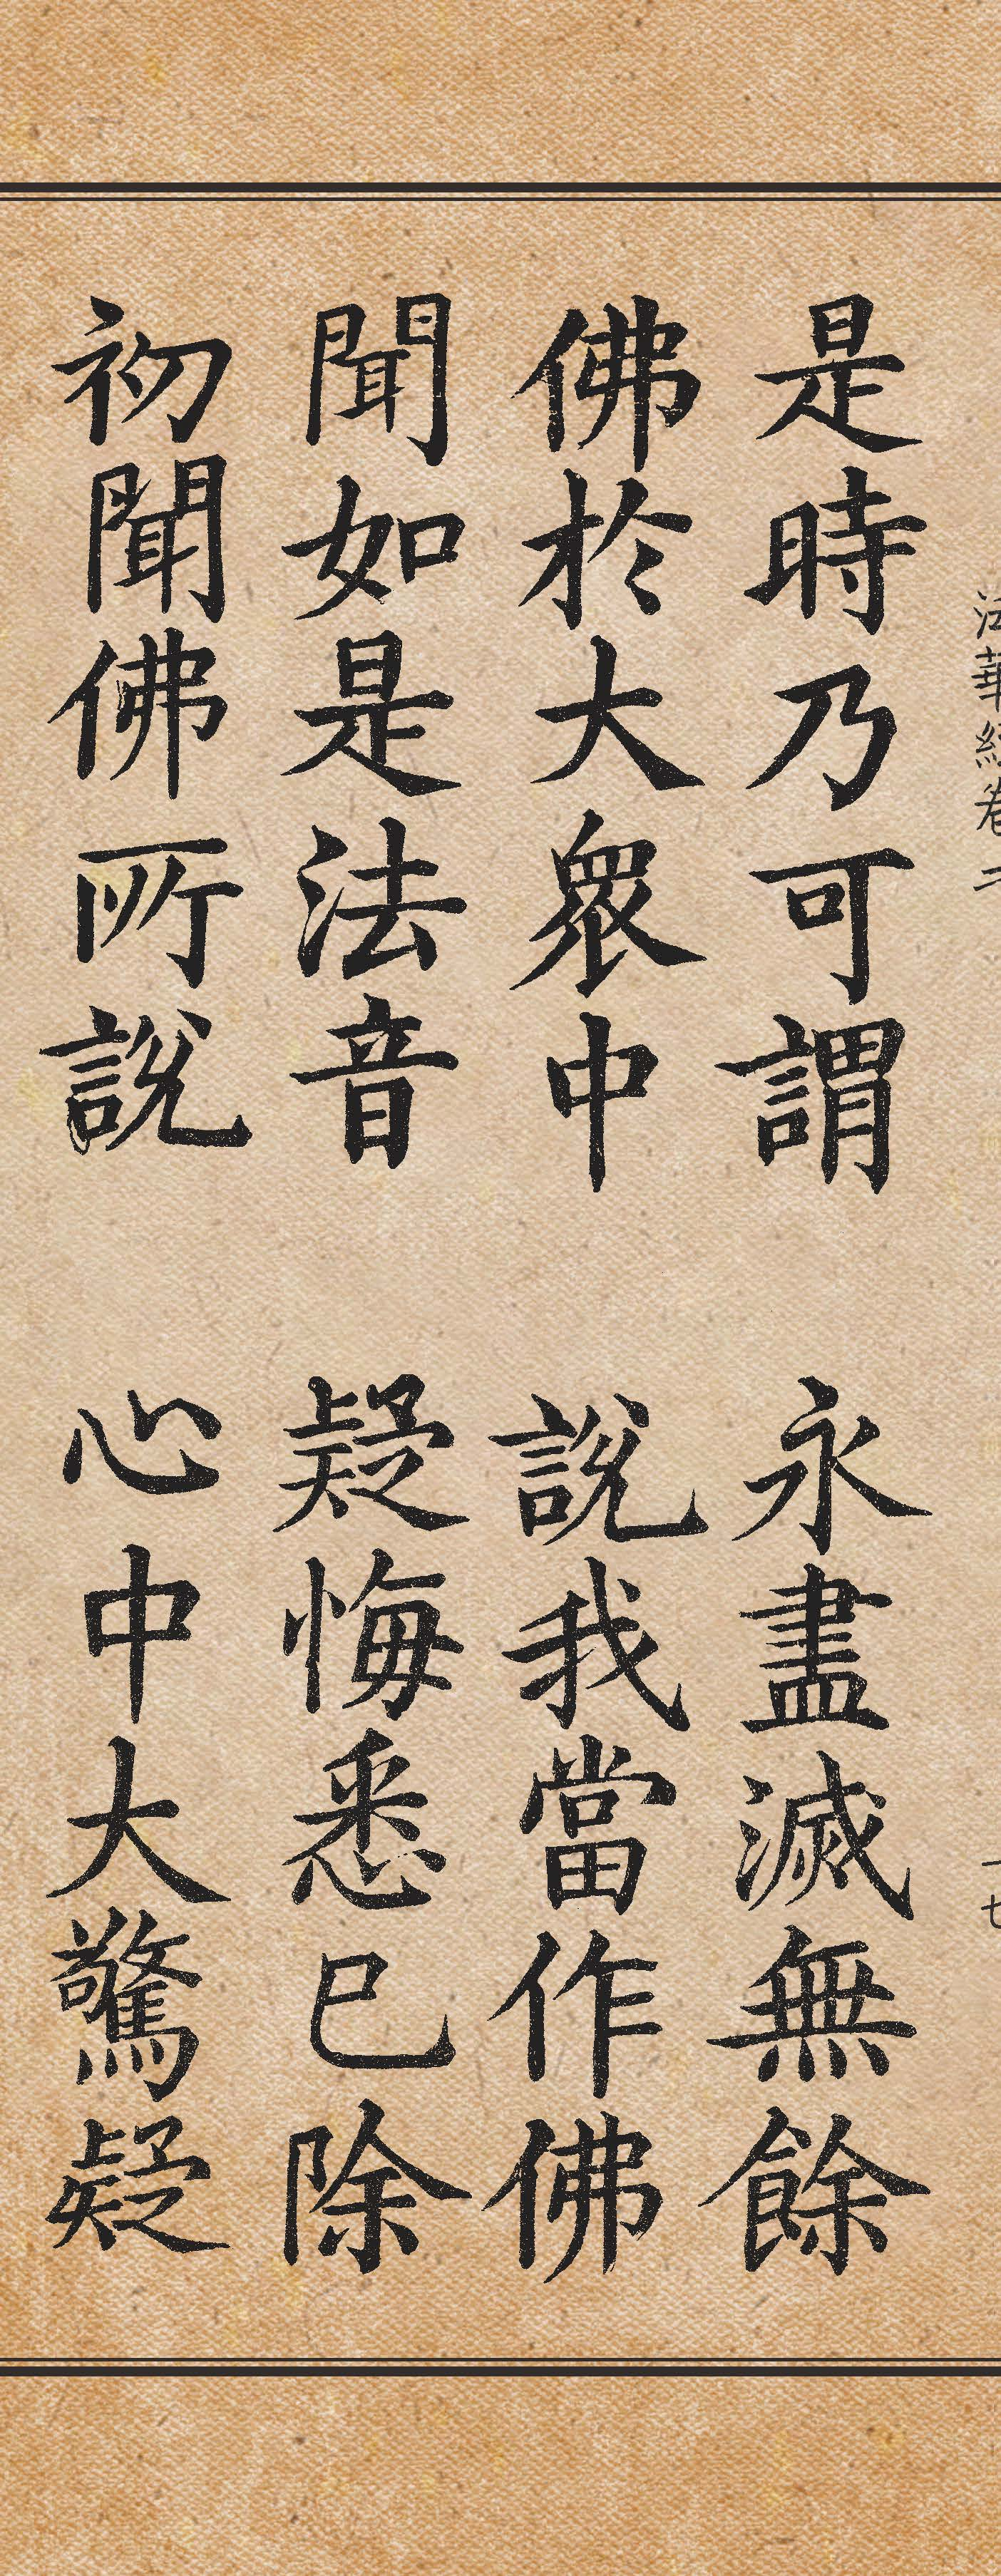 法華經卷二 十七
是時乃可謂 永盡滅無餘
佛於大衆中 說我當作佛
聞如是法音 疑悔悉已除
初聞佛所說 心中大驚疑